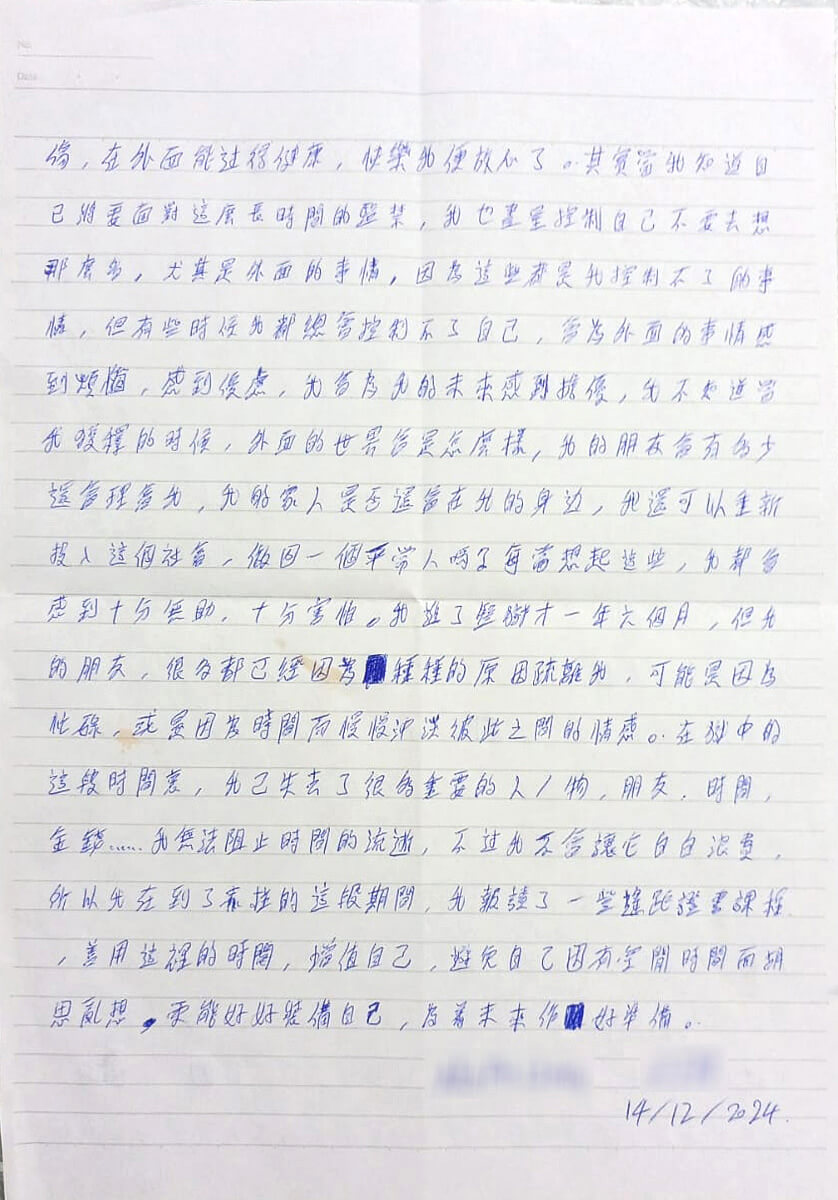 No.
Date
傷，在外面能过得健康，快樂我便放心了。其實當我知道自
己將要面對這麽長時間的監禁，我也盡量控制自己不要去想
那麽多，尤其是外面的事情，因為這些都是我控制不了的事
情，但有些時候我都總會控制不了自己，會為外面的事情感
到煩惱，感到憂慮，我會為我的未來感到擔優，我不知道當
我獲釋的時候，外面的世界會是怎麽樣，我的朋友會有多少
還會理會我，我的家人是否還會在我的身边，我還可以重新
投入這個社會，做回一個平常人嗎？每當想起這些，我都會
感到十分無助，十分害怕。我進了監獄才一年六個月，但我
的朋友，很多都已經因為種種的原因疏離我，可能是因為
忙碌，或是因為時間而慢慢沖淡彼此之間的情感。在獄中的
這段時間裏，我已失去了很多重要的人/物，朋友，時間，
金錢……我無法阻止時間的流逝，不过我不會讓它白白浪費，
所以我在到了的這段期間，我報讀了一些證書課程
，善用這裡的時間，增值自己，避免自己因有空閒時間而胡
思亂想，更能好好裝備自己，為着未來作好準備。
14/12/2024.